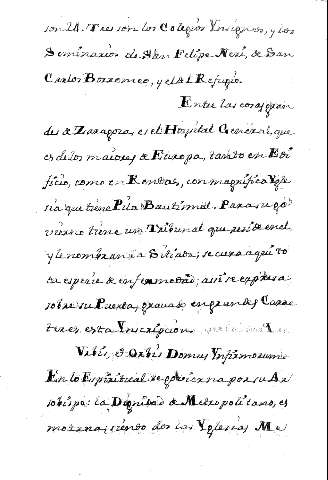 son 24. Tres son los Colegios Ynsignes, y los
Seminarios de San Felipe Neri, de San
Carlos Borromeo, y el del Refugio.
Entre las cosas gran
des de Zaragoza, es el Hospital General que
es de los maiores de Europa, tanto en Edi
ficio, como en Rentas, con magnifica Ygle
sia que tiene Pila Bautismal. Para su go
vierno tiene un Tribunal que reside en el
y le nombran la Sitiada; se cura aqui to
da especie de enfermedad; assi se expresa
sobre su Puerta, gravado en grandes Carac
teres esta Ynscripcion
Vrbis, et Orbis Domus Ynfirmorum
En lo Espiritual se govierna por su Ar
zobispo: la Dignidad de Metropolitano, es
moderna; siendo dos las Yglesias Me